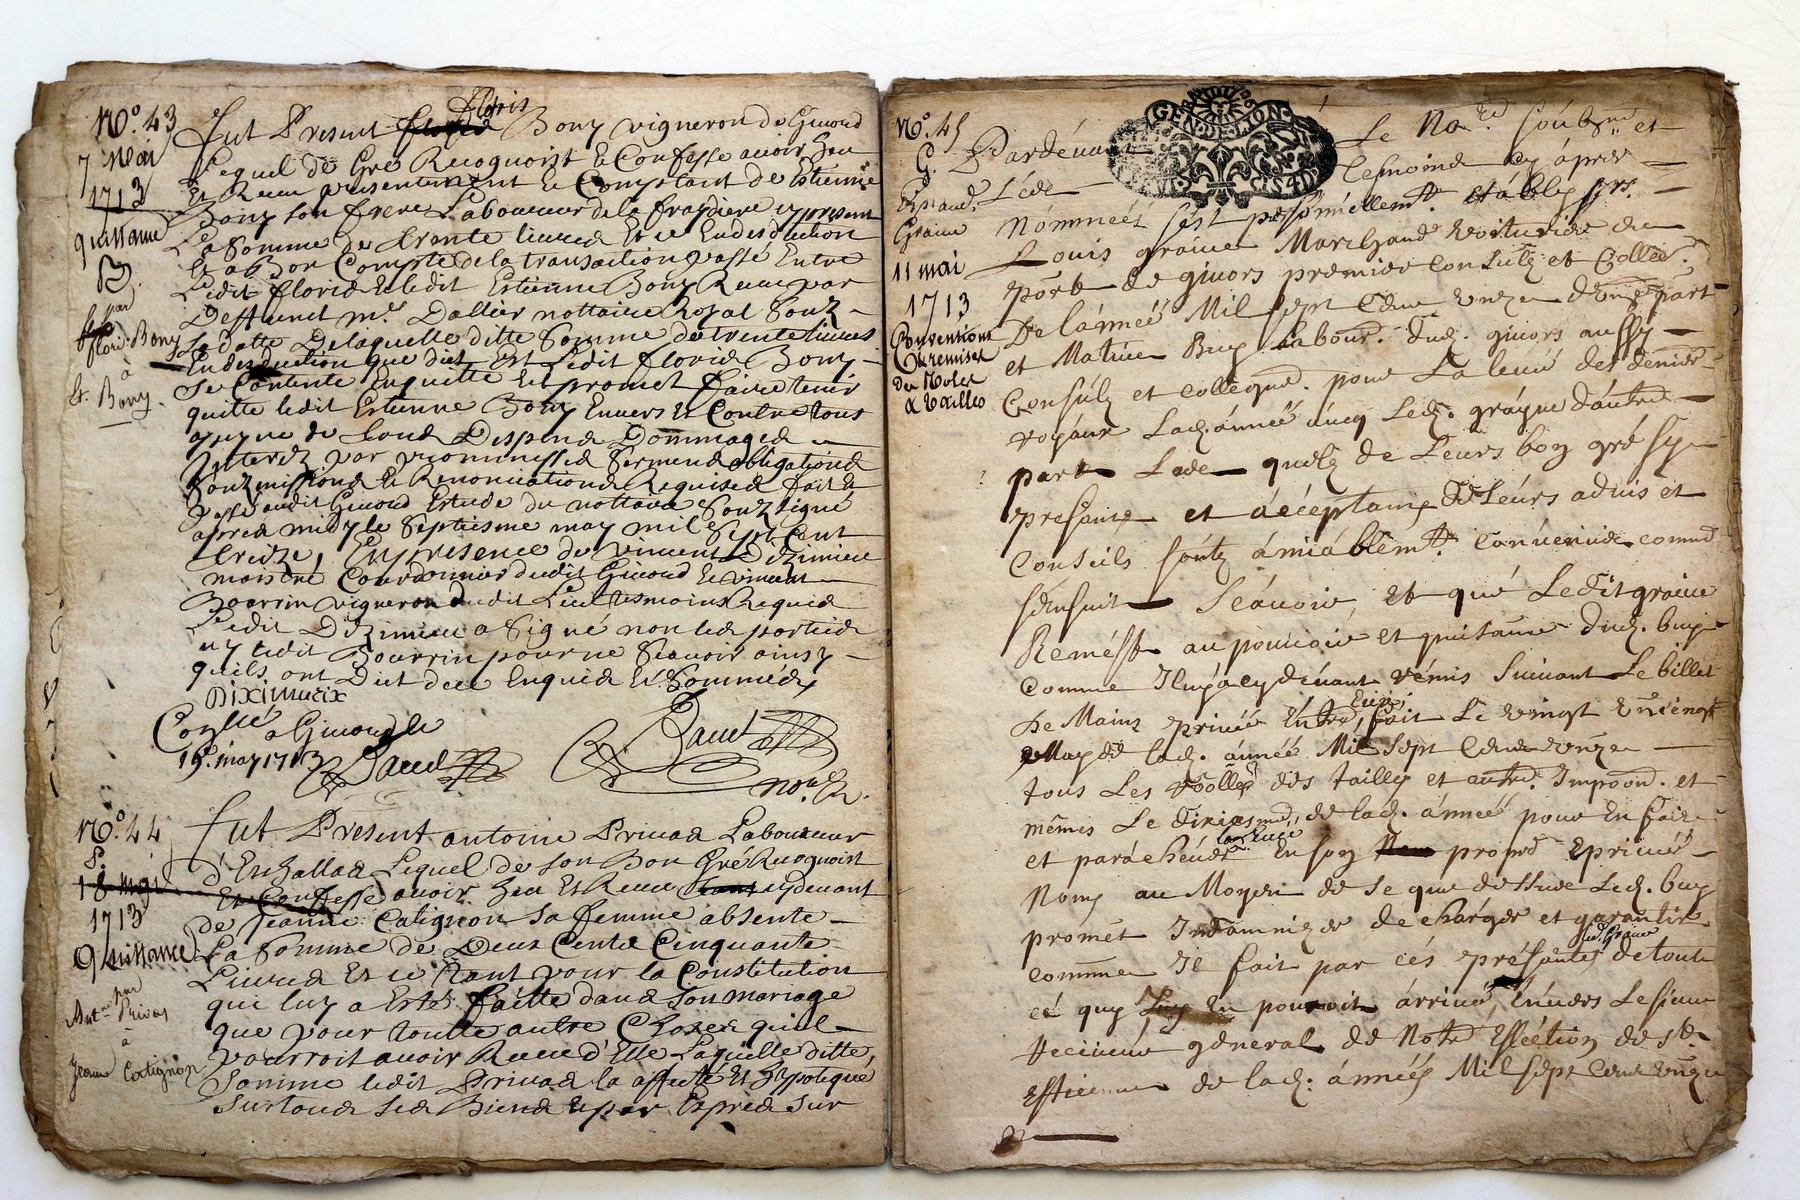 N.º 43
7 mai
1713
quittance
par
flori. Bony
à
Et. Bony.
floris
Fut Present Bony vigneron de Givord
Lequel de Gré Recognoist & Confesse avoir heu
Et Receu presentement & Comptant de Estienne
Bony son frere Laboureur de la fraydiere cy present
La Somme de trente livres Et ce En desduction
Et a Bon Compte de la transaction passé Entre
Ledit florid & ledit Estienne Bony Receu par
Deffunct m.e Dallier nottaire Royal Souz
Sa datte De laquelle ditte Somme de trente livres
En desduction que dict Est Ledit florid Bony
Se Contente En quitte Et promet faire tenir
quitte ledit Estienne Bony Envers Et Contre tous
a peyne de tous Despens Dommages
Interez par promesses Serment obligations
Souzmissions & Renonciations Requises fait &
passé audit Givord Estude du nottaire Souzsigné
apres midy le Septiesme may mil Sept Cent
treize, En presence de Vincent Dizimieu
maistre Courdonnier dudit Givord & vincent
Bourrin vigneron dudit Lieu tesmoins Requis
Ledit Dizimieu a Signé non les parties
ny ledit Bourrin pour ne Scavoir ainsy
quils ont Dict de ce Enquis Et Sommés
Diximieux
Con.llé a Givord le
19. may 1713
N.º 44
18 mai
1713
Quittance
par
Ant. Privas
à
Jeanne Catignon
Fut Present antoine Privas Laboureur
d'Enzallas Lequel de son Bon Gré Recognoist
Et Confesse avoir heu Et Receu cydevant
de Jeanne Catignon Sa femme absente
La Somme de Deux Cents Cinquante
Livres Et ce tant pour la Constitution
qui luy a Estés faitte dans Son mariage
que pour toutte autre Choses quil
pourroit avoir Receu d'Elle Laquelle ditte
Somme ledit Privas la affecté Et hypotequé
Sur tous Ses Biens & par Exprés Sur
GEN. DE. LION
N.º 45
G.
Graine
11 mai
1713
Conventions
& remises
de Roles
de tailles
Pardevant Le No.re soubz.né et
tesmoins cy apres
nommées s'est personnellem.t establys sr.
Louis graine Marchand voiturier du
port de givors premier consulz et Collec.
De l'année Mil sept Cens unze d'une part
et Matieu Buy labour. dud. givors aussy
Consulz et collegue. pour La leuée des deniers
royaux Lad. année avecq Led. grayne d'autre
part Lesquelz de Leurs bon gré sy
presants et acceptants de Leurs aduis et
Conseils sont amiablem.t convenus comme
sensuit Scavoir, Et que Ledit graine
Remest au pouvoir et puisance dud. buy
comme Il luy a cydevant remis Suivant Le billet
De Mains privée Entre Eux, fait Le vingt
May de lad. année Mil sept Cens unze
tous Les roolles des tailles et autre. Impoon. et
mêmes Le de lad. année pour En faire
et parachever En son propre privé
Nom au Moyen de se que dessus Led. buy
promet Indamnizer decharger et garantir
comme Il fait par ces présantes led. Graine de tout
ce quy Luy En pourroit arriué, Enuers Le sieur
Receueur général de Notre Eslection de st.
Estienne de lad. année Mil sept Cens unze